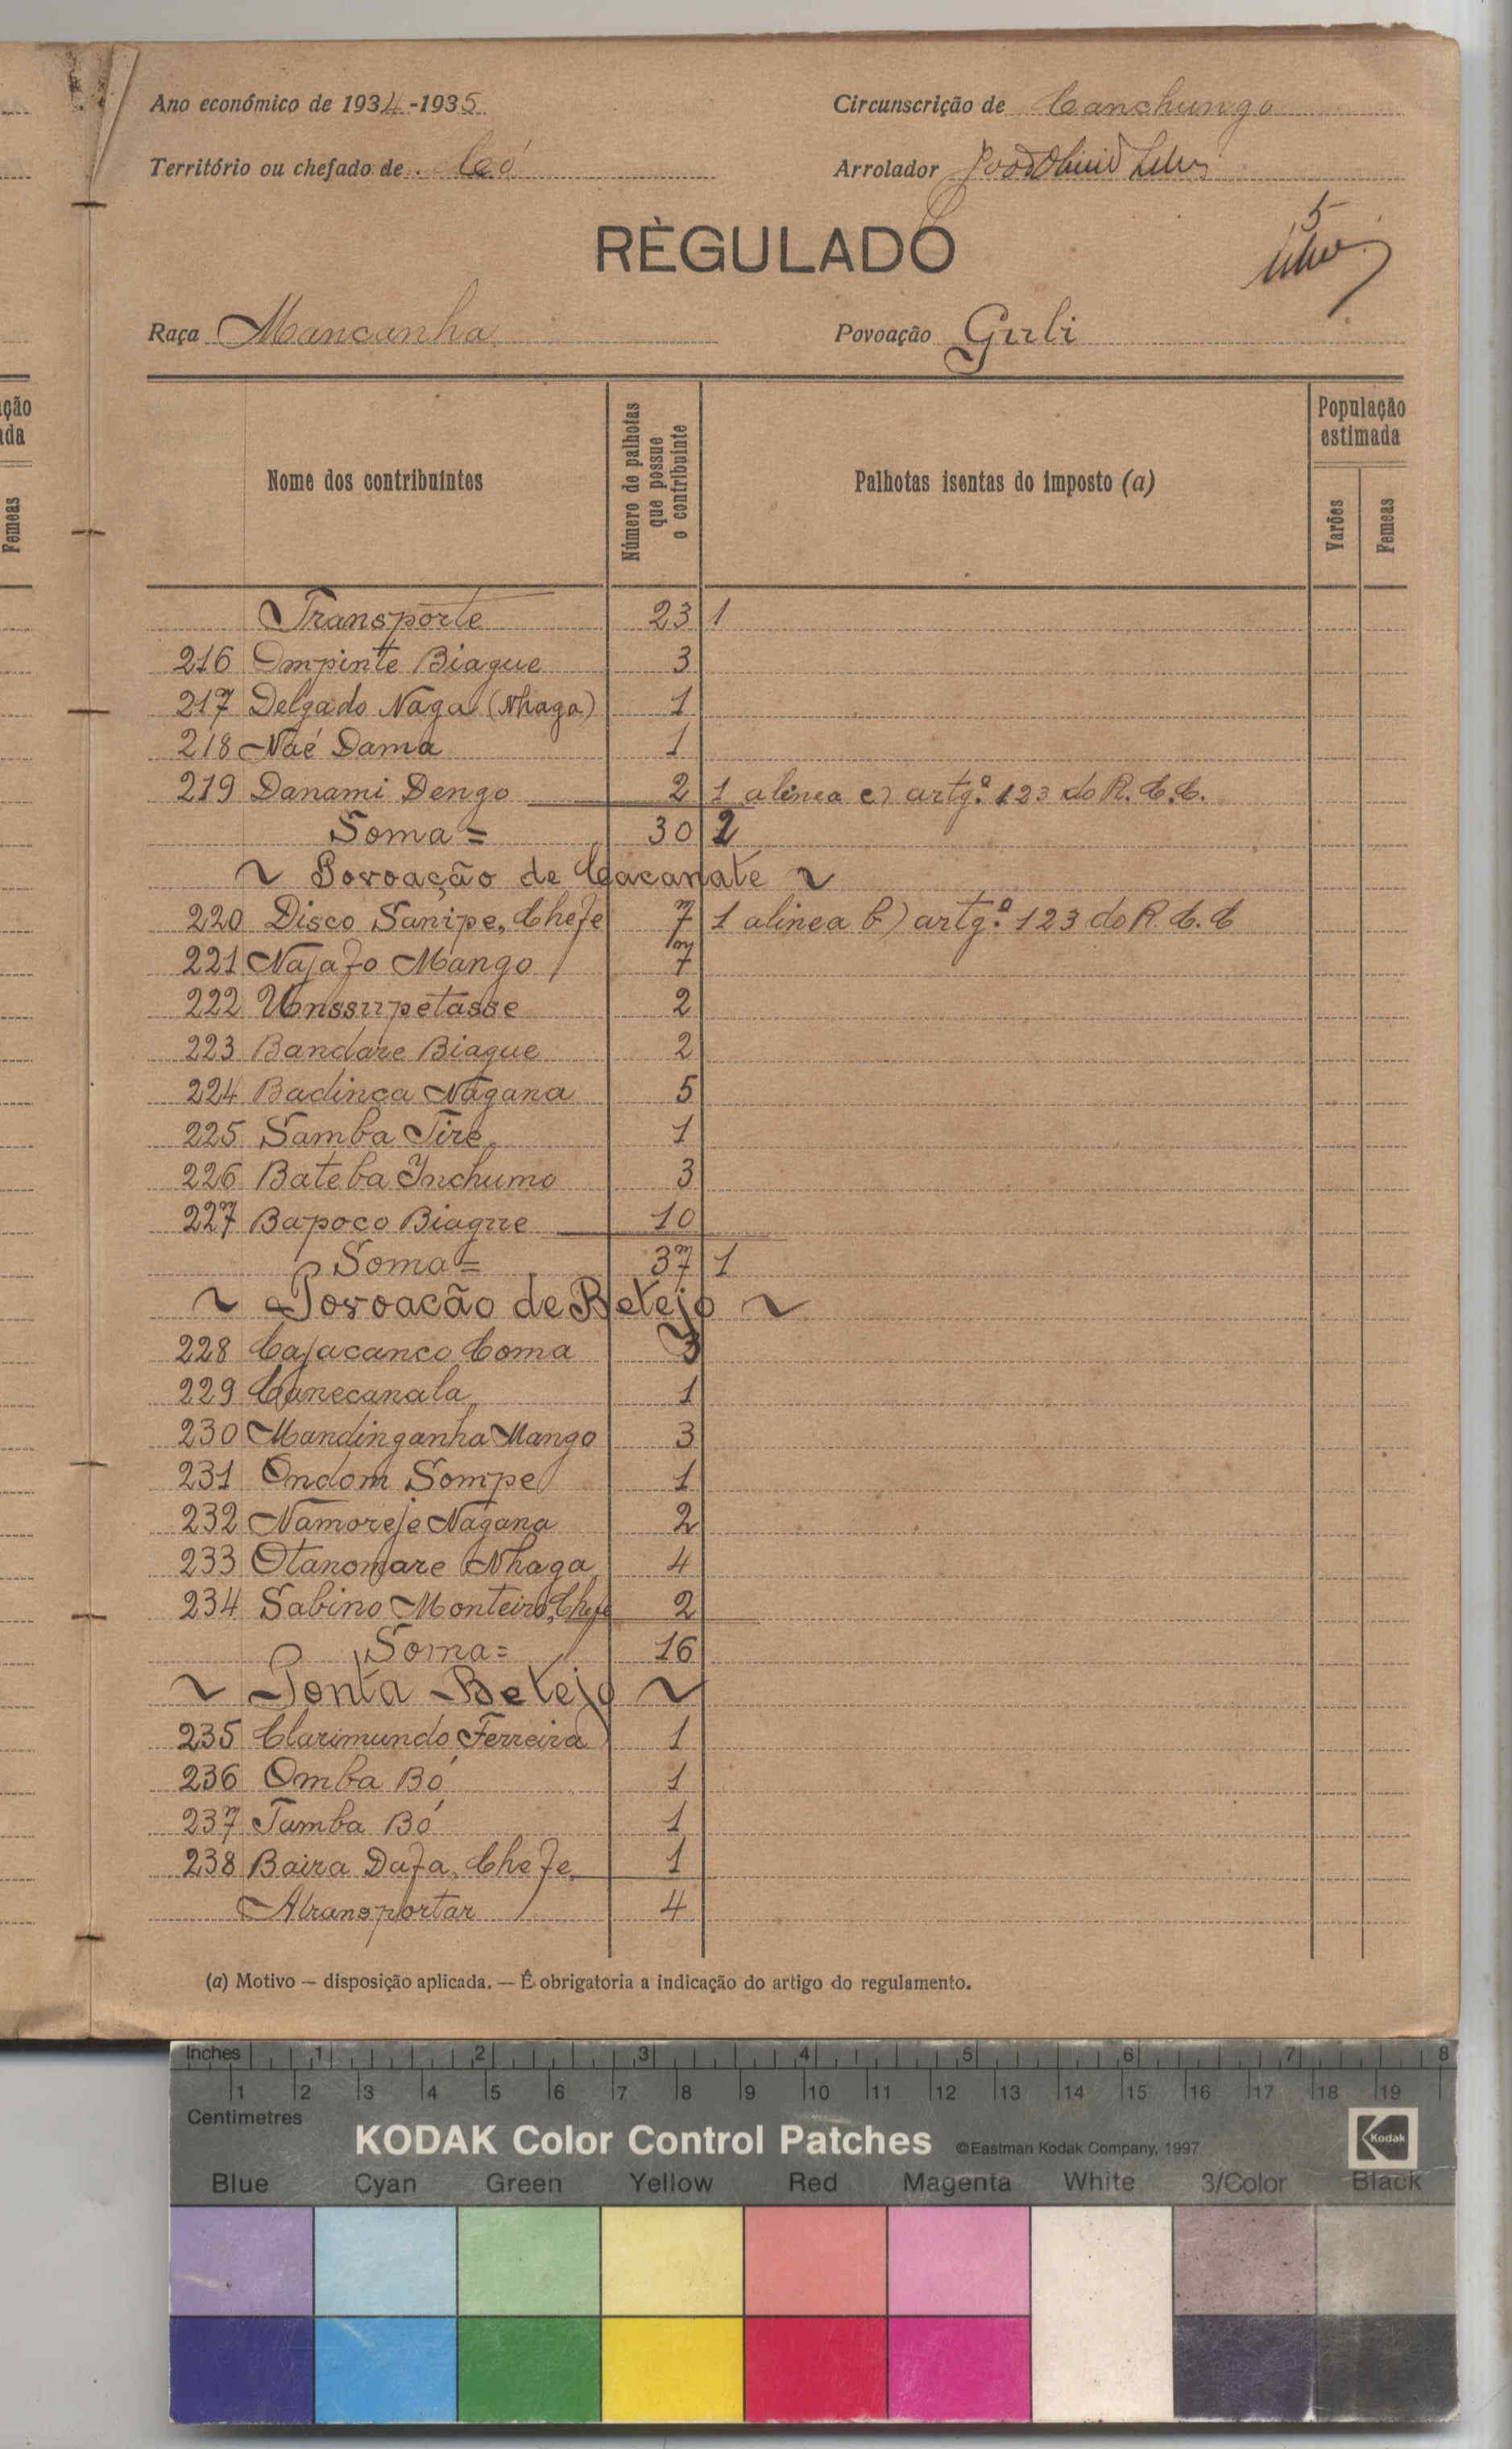 Ano económico de 1934-1935
Circunscrição de Canchungo
Território ou chefado de Có
Arrolador
RÈGULADO
5
Raça Mancanha
Povoação Guli
Nome dos contribuintes
Número de palhotas que possue o contribuinte
Palhotas isentas do imposto (a)
População estimada
Varões
Femeas
Transporte 23 1
216 Ompinte Biague 3
217 Delgado Naga (Nhaga) 1
218 Naé Dama 1
219 Danami Dengo 2 1 alinea e) artgº 123 do R. C. C.
Soma= 30 2
~ Povoação de Cacanate ~
220 Disco Sanipe, Chefe 7 1 alinea b) artg.º 123 do R. C. C
221 Najafo Mango 7
222 Unssupetasse 2
223 Bandare Biague 2
224 Badinca Nagana 5
225 Samba Tire 1
226 Bateba Inchumo 3
227 Bapoco Biague 10
Soma= 37 1
~ Povoacão de Betejo ~
228 Cajacanco Coma 3
229 Canecanala 1
230 Mandinganha Mango 3
231 Ondom Sompe 1
232 Namoreje Nagana 2
233 Otanomare Nhaga 4
234 Sabino Monteiro, Chefe 2
Soma= 16
~ Ponta Betejo ~
235 Clarimundo Ferreira 1
236 Omba Bó 1
237 Tamba Bó 1
238 Baira Dafa, Chefe 1
Atransportar 4
(a) Motivo — disposição aplicada. — É obrigatoria a indicação do artigo do regulamento.
ção
ada
Femeas
Inches 1 2 3 4 5 6 7 8
1 2 3 4 5 6 7 8 9 10 11 12 13 14 15 16 17 18 19
Centimetres
KODAK Color Control Patches ©Eastman Kodak Company, 1997 Kodak
Blue Cyan Green Yellow Red Magenta White 3/Color Black